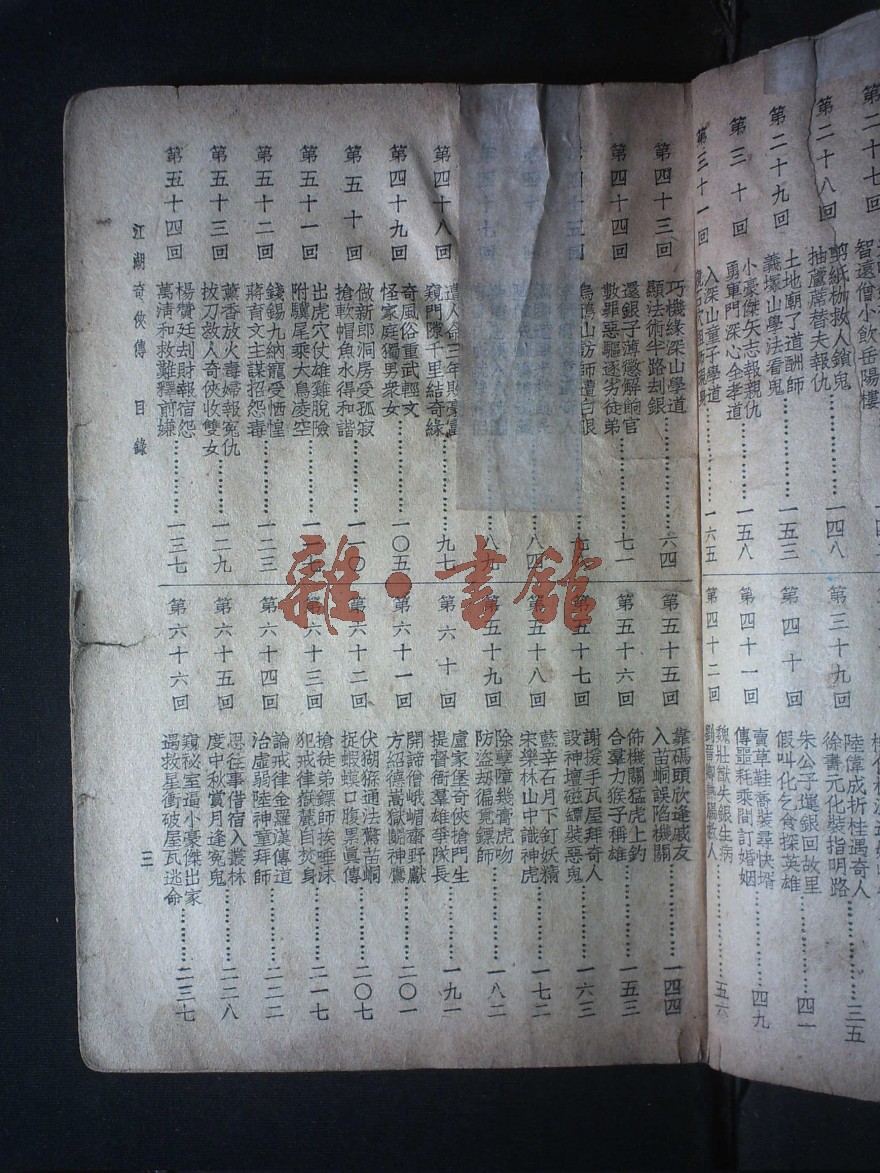 第二十七回
智還僧小飲岳陽樓
第二十八回
剪紙枷救人鎖鬼
抽蘆蓆替夫報仇……一四八
第二十九回
土地廟了道酬師
義壕山學法看鬼……一五三
第三十回
小豪傑矢志報親仇
勇軍門深心全孝道……一五八
第三十一回
入深山童子學道
……一六五
陸偉成折桂遇奇人
第三十九回
徐書元化裝指明路……三五
第四十回
朱公子運銀回故里
假叫化乞食探英雄……四一
第四十一回
賣草鞋喬裝尋快壻
傳噩耗乘間訂婚姻……四九
第四十二回
魏壯猷失銀生病
……五六
第四十三回
巧機緣深山學道
顯法術半路刦銀……六四
第四十四回
還銀子薄懲解餉官
數罪惡驅逐劣徒弟……七一
八四
八九
第四十八回
窺門隙千里結奇緣……九七
第四十九回
奇風俗重武輕文
怪家庭獨男衆女……一〇五
第五十回
做新郎洞房受孤寂
搶軟帽魚水得和諧……一一〇
第五十一回
出虎穴仗雄雞脫險
附驥尾乘大鳥凌空……一一七
第五十二回
錢錫九納寵受恓惶
蔣育文主謀招怨毒……一二三
第五十三回
薰香放火毒婦報寃仇
拔刀救人奇俠收雙女……一二九
第五十四回
楊贊廷刦財報宿怨
萬清和救難釋前嫌……一三七
第五十五回
靠碼頭欣逢戚友
入苗峒誤陷機關……一四四
第五十六回
佈機關猛虎上鈎
合羣力猴子稱雄……一五三
第五十七回
謝援手瓦屋拜奇人
設神壇磁罈裝惡鬼……一六三
第五十八回
藍辛石月下釘妖精
宋樂林山中識神虎……一七二
第五十九回
除孽障幾膏虎吻
防盜刧偏覓鏢師……一八二
第六十回
盧家堡奇俠搶門生
提督衙羣雄爭隊長……一九一
第六十一回
開諦僧峨嵋齋野獸
方紹德嵩嶽鬬神鷹……二〇一
第六十二回
伏猢猻通法驚苗峒
捉蝦蟆口腹累眞傳……二〇七
第六十三回
搶徒弟鏢師挨唾沫
犯戒律嶽麓自焚身……二一七
第六十四回
論戒律金羅漢傳道
治虛弱陸神童拜師……二二二
第六十五回
思往事借宿入叢林
度中秋賞月逢寃鬼……二二八
第六十六回
窺祕室逼小豪傑出家
遇救星衝破屋瓦逃命……二三七
江湖奇俠傳 目錄
三
雜·書館